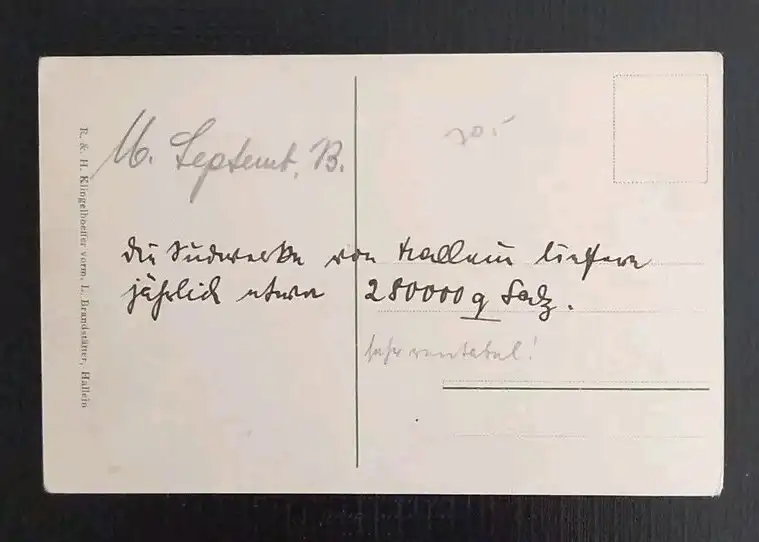 R. & H. Klingelhoeffer vorm. L. Brandstätter, Hallein
M. Septemb. B.
70.-
Die Sudwerke von Hallein liefern
jährlich etwa 280000 q Salz.
sehr rentabel!